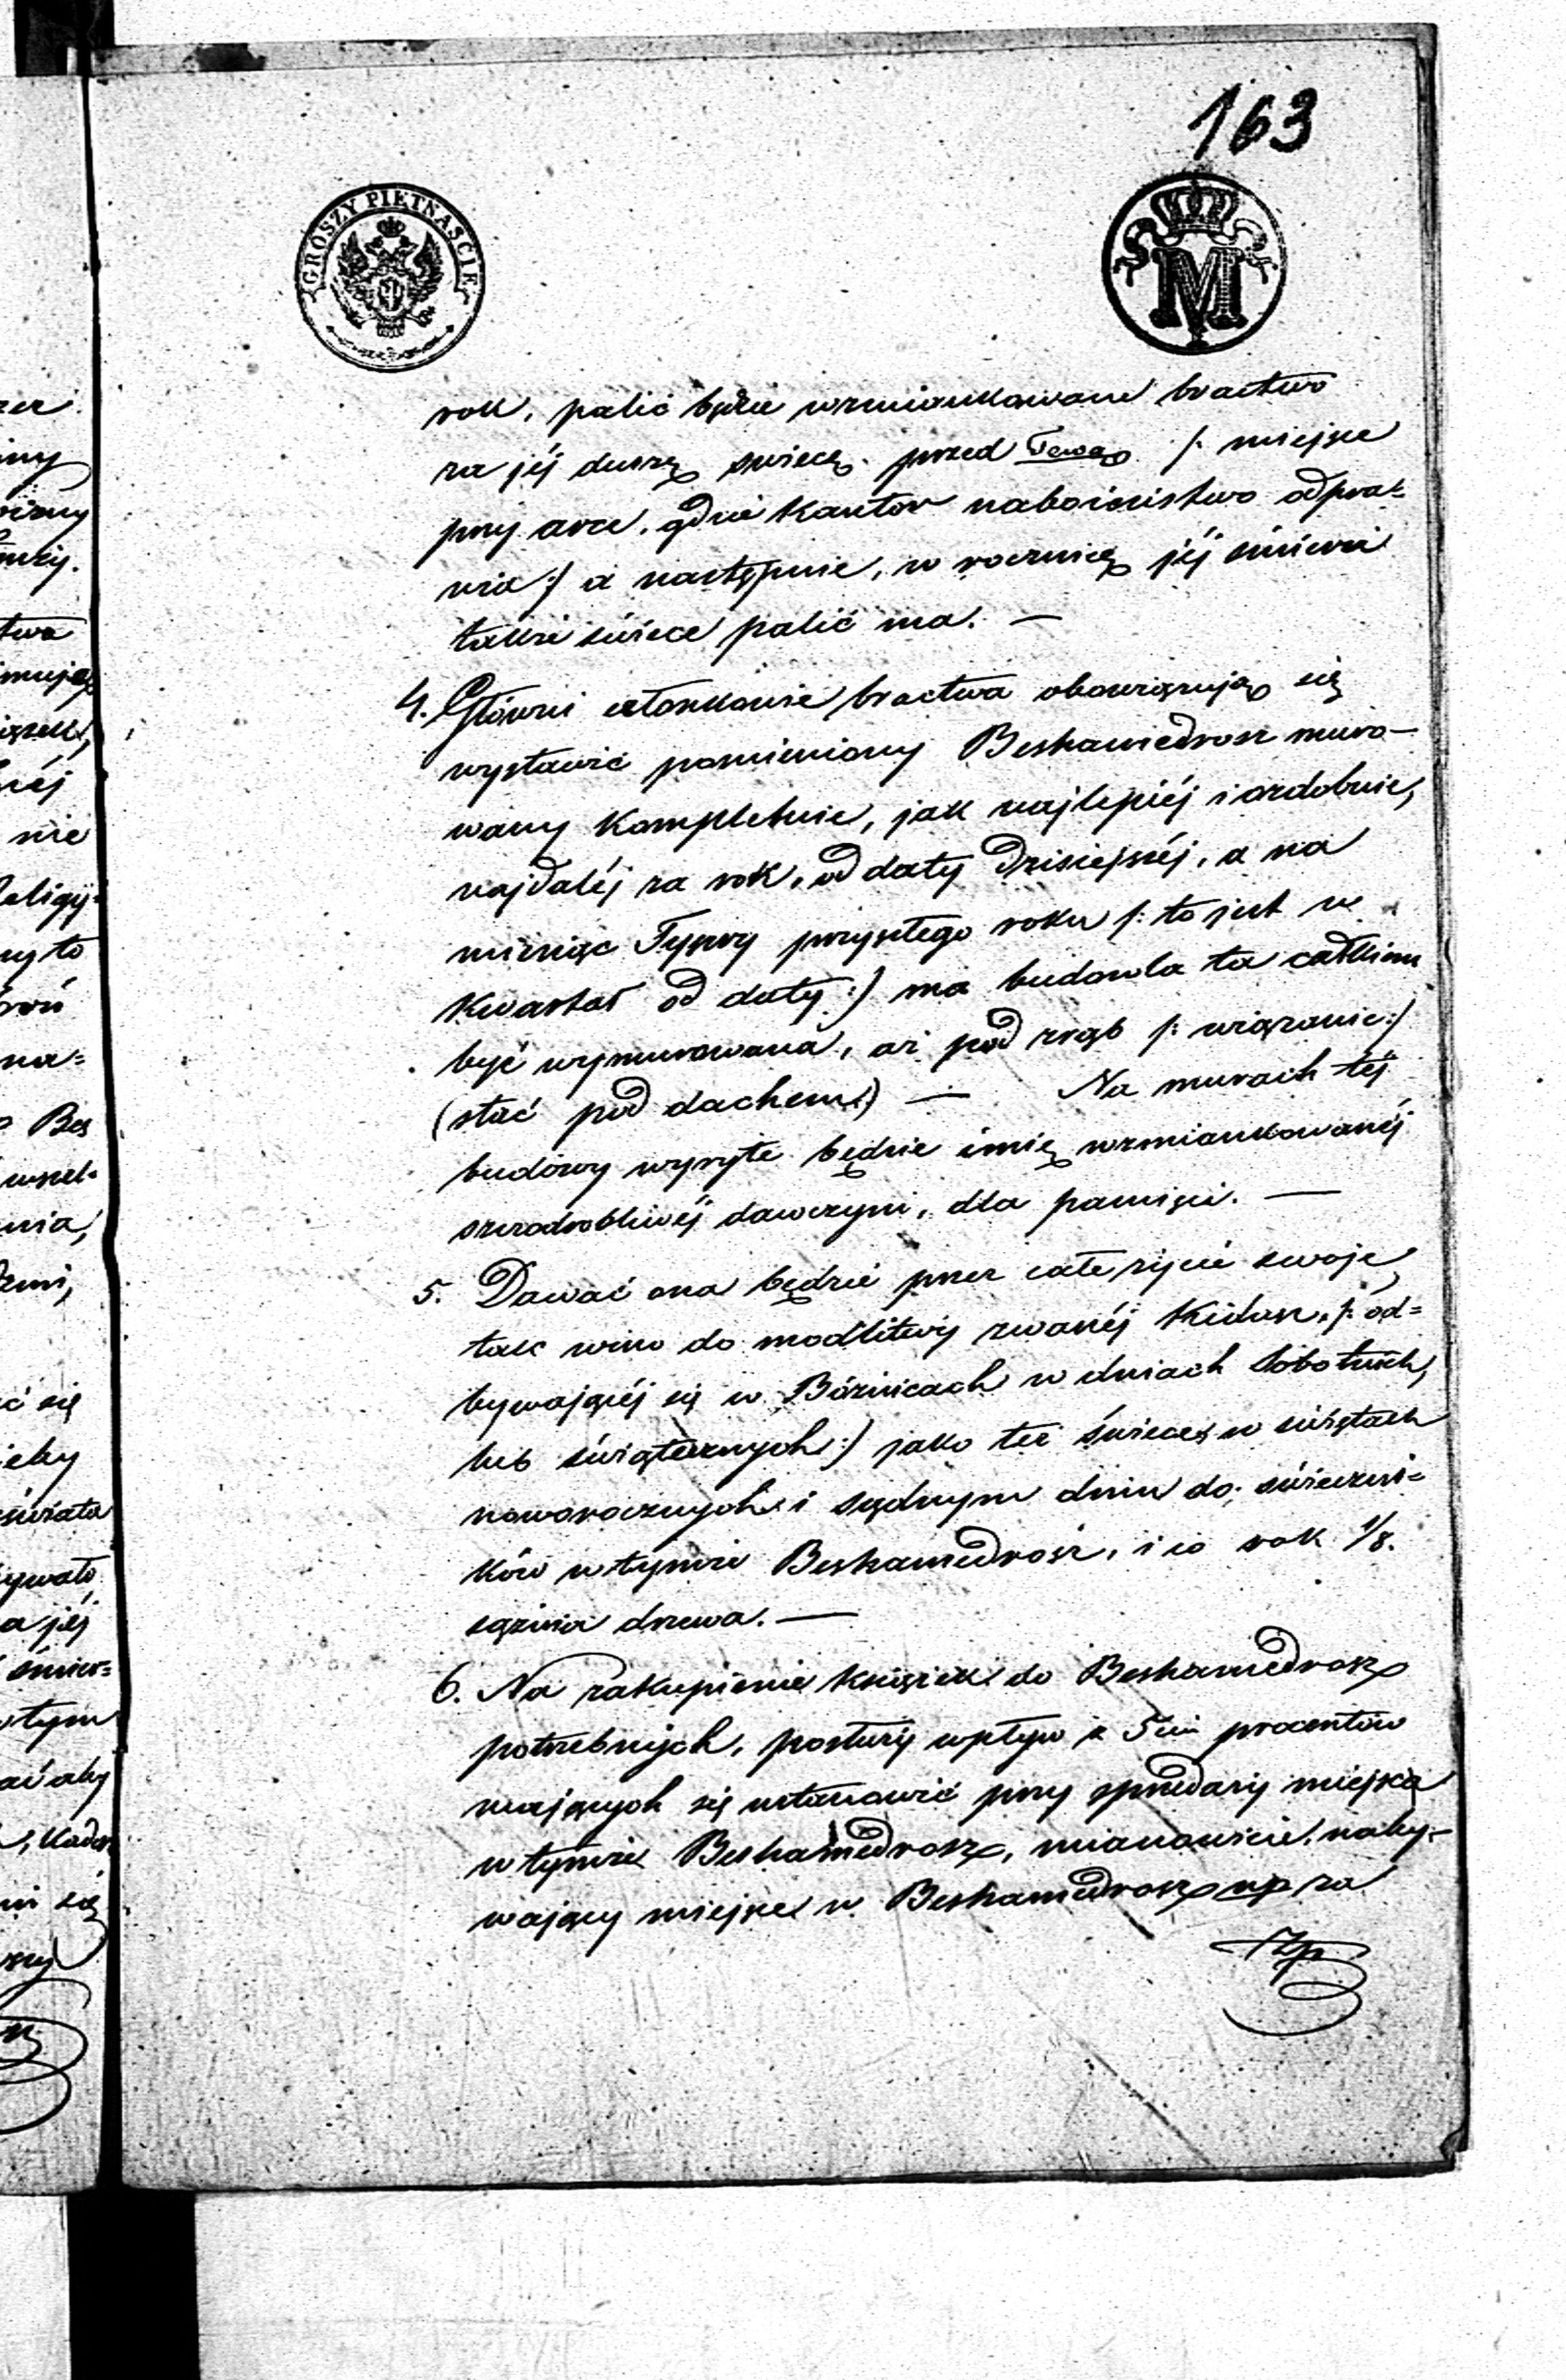 163
GROSZY PIĘTNAŚCIE
M
rok, palić będzie wzmiankowane bractwo
za jéj duszę swiecę przed Tewą /: miejsce
przy arce, gdzie Kantor nabożeństwo odpra=
wia :/ a następnie, w rocznicę jéj śmierci
także świece palić ma. —
4. Główni członkowie bractwa obowiązują się
wystawić pomieniony Beshamedrosz muro-
wany kompletnie, jak najlepiéj i ozdobnie,
najdaléj za rok, od daty dzisiejszéj, a na
miesiąc Tyszry przyszłego roku /: to jest w
Kwartał od daty :/ ma budowla ta całkiem
być wymurowana, aż pod zrąb /: wiązanie :/
(stać pod dachem) — Na murach téj
budowy wyryte będzie imię wzmiankowanéj
szczodrobliwéj dawczyni, dla pamięci. —
5. Dawać ona będzie przez całe życie swoje
tak wino do modlitwy zwanéj Kidusz, /: od=
bywającéj się w Bóżnicach w dniach Sobotnich,
lub świątecznych :/ jako też świece w świętach
noworocznych i sądnym dniu do świeczni=
ków w tymże Beshamedrosz, i co rok 1/8.
sążnia drzewa. —
6. Na zakupienie książek do Beshamedroszu
potrzebnych, posłuży wpływ z 5ciu procentów
mających się ustanowić przy sprzedaży miejsca
w tymże Beshamedroszu, mianowicie, naby-
wający miejsce w Beshamedroszu np za